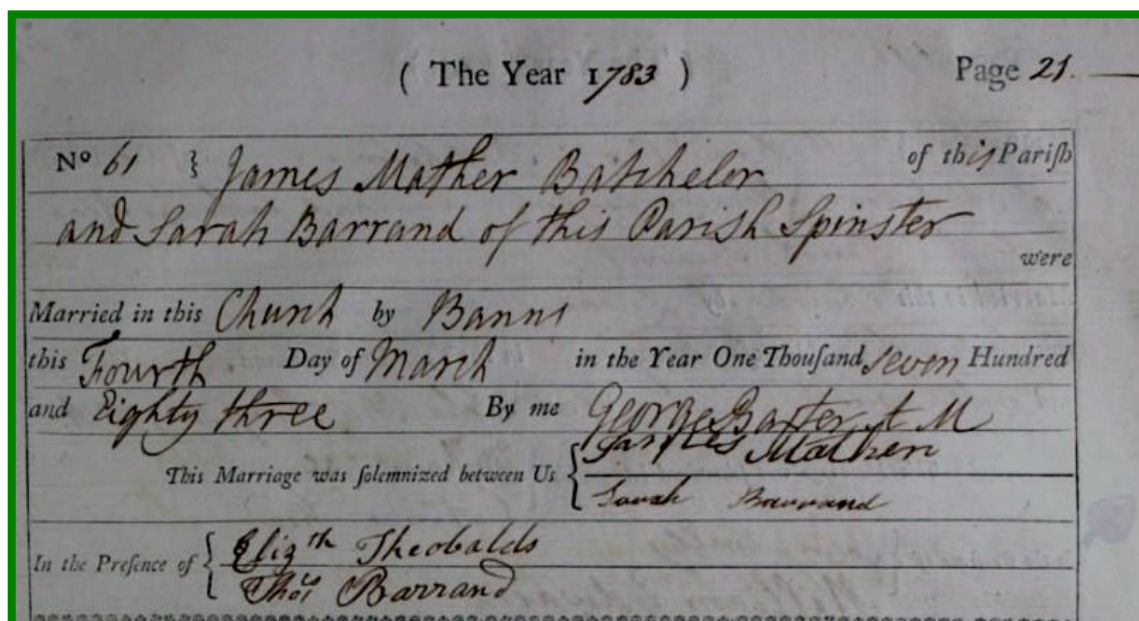 ( The Year 1783 ) Page 21.
No 61 } James Mather Batchelor of this Pariſh
and Sarah Barrand of this Parish Spinster
were
Married in this Church by Banns
this Fourth Day of March in the Year One Thouſand seven Hundred
and Eighty three By me George Baxter A M
This Marriage was ſolemnized between Us { James Mather
Sarah Barrand
In the Preſence of { Elizth Theobalds
Thos Barrand